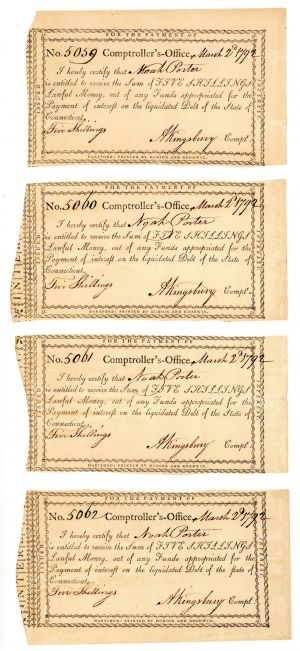 FOR THE PAYMENT OF
No. 5059 Comptroller's-Office, March 2d 1792
I hereby certify that Noah Porter
is entitled to receive the Sum of FIVE SHILLINGS
Lawful Money, out of any Funds appropriated for the
Payment of interest on the liquidated Debt of the State of
Connecticut,
Five Shillings
AKingsbury Compl.
HARTFORD: PRINTED BY HUDSON AND GOODWIN.
FOR THE PAYMENT OF
No. 5060 Comptroller's-Office, March 2d 1792
I hereby certify that Noah Porter
is entitled to receive the Sum of FIVE SHILLINGS
Lawful Money, out of any Funds appropriated for the
Payment of interest on the liquidated Debt of the State of
Connecticut,
Five Shillings
AKingsbury Compl.
HARTFORD: PRINTED BY HUDSON AND GOODWIN.
FOR THE PAYMENT OF
No. 5061 Comptroller's-Office, March 2d 1792
I hereby certify that Noah Porter
is entitled to receive the Sum of FIVE SHILLINGS
Lawful Money, out of any Funds appropriated for the
Payment of interest on the liquidated Debt of the State of
Connecticut,
Five Shillings
AKingsbury Compl.
HARTFORD: PRINTED BY HUDSON AND GOODWIN.
FOR THE PAYMENT OF
No. 5062 Comptroller's-Office, March 2d 1792
I hereby certify that Noah Porter
is entitled to receive the Sum of FIVE SHILLINGS
Lawful Money, out of any Funds appropriated for the
Payment of interest on the liquidated Debt of the state of
Connecticut,
Five Shillings
AKingsbury Compl.
HARTFORD: PRINTED BY HUDSON AND GOODWIN.